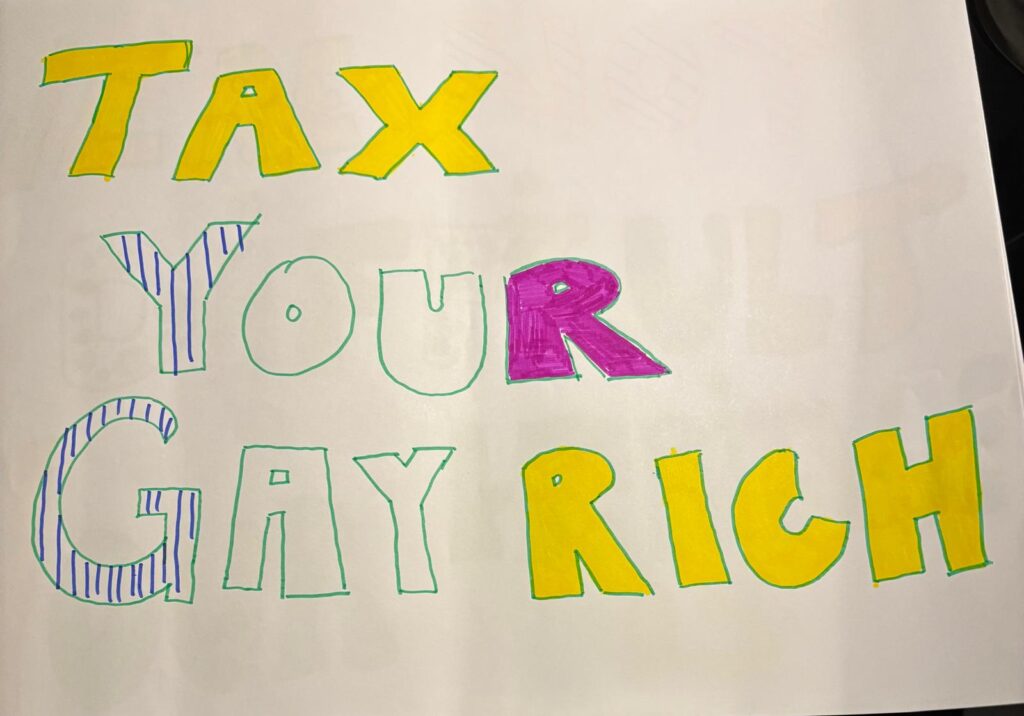 TAX
YOUR
GAY RICH